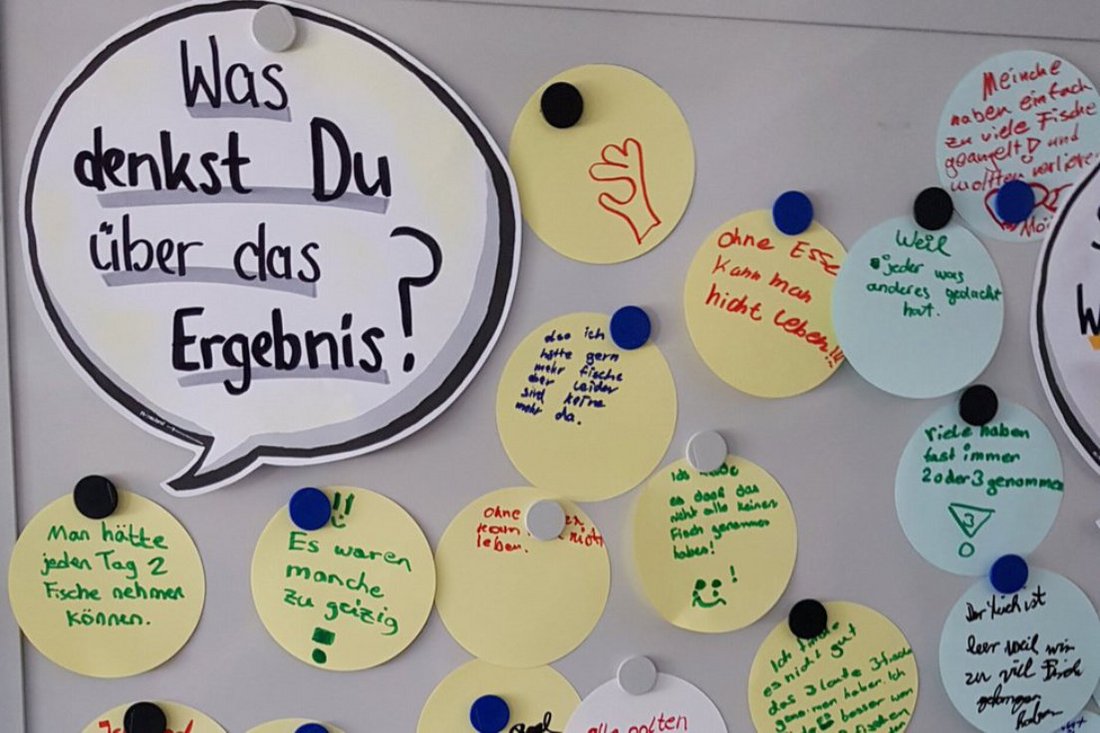 Was
denkst Du
über das
Ergebnis?
Meinche
haben einfach
zu viele Fische
geangelt! und
wollten
ohne
Kann man
nicht leben!!!
Weil
jeder was
anderes gedacht
hat.
das ich
hätte gern
mehr fische
aber leider
sind keine
mehr da.
viele haben
fast immen
2 oder 3 genommen
3
!
Man hätte
jeden Tag 2
Fische nehmen
können.
!!
Es waren
manche
zu geizig
!
ohne
nicht
leben.
Ich
es doof das
nicht alle keinen
Fisch genommen
haben!
!
Der Teich ist
leer weil wir
zu vill Fische
gefangen
haben
Ich finde
es nicht gut
das 3 leute 3 fische
genomen haben. Ich
besser wen
alle sollten